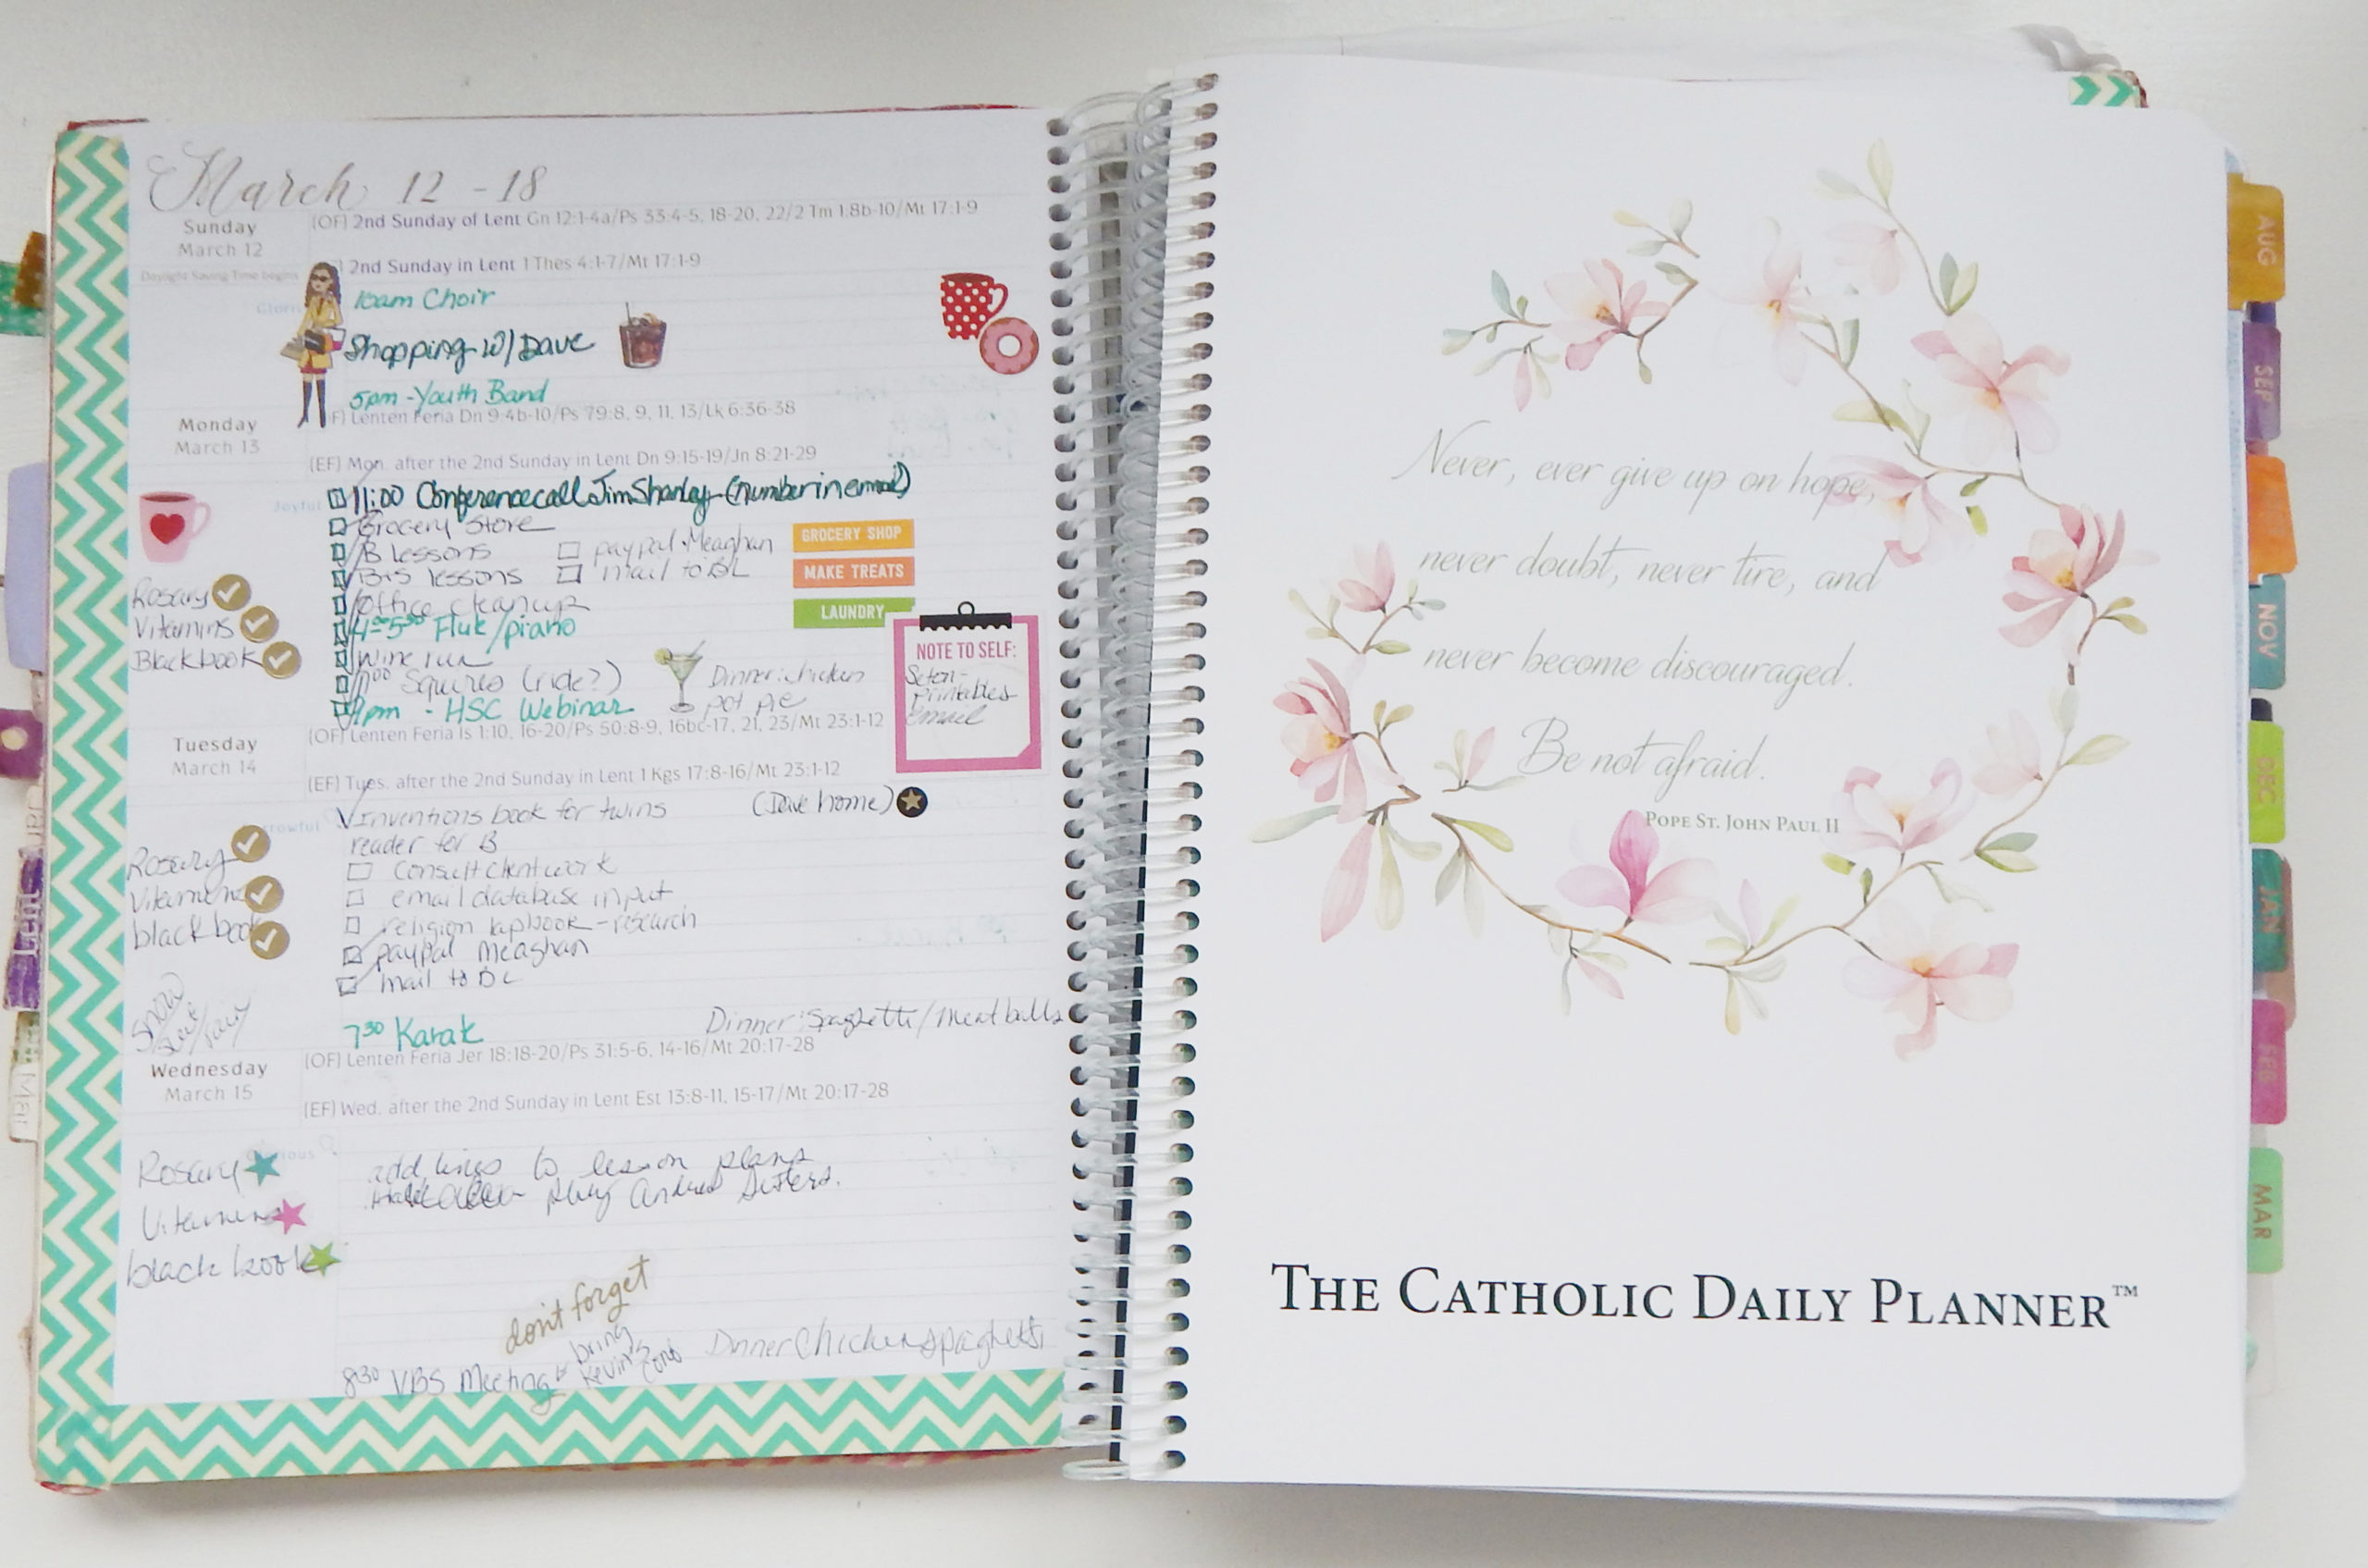 March 12 - 18
Sunday
March 12
Daylight Saving Time begins
(OF) 2nd Sunday of Lent Gn 12:1-4a/Ps 33:4-5, 18-20, 22/2 Tm 1:8b-10/Mt 17:1-9
2nd Sunday in Lent 1 Thes 4:1-7/Mt 17:1-9
10am Choir
Shopping w/ Dave
5pm - Youth Band
Monday
March 13
F) Lenten Feria Dn 9:4b-10/Ps 79:8, 9, 11, 13/Lk 6:36-38
(EF) Mon. after the 2nd Sunday in Lent Dn 9:15-19/Jn 8:21-29
Joyful
11:00 Conference call Jim Shanley (number in email)
Grocery Store
B lessons
paypal Meaghan
lessons
mail to BL
office cleanup
Flute/piano
wine run
Squires (ride?)
9pm - HSC Webinar
GROCERY SHOP
MAKE TREATS
LAUNDRY
Rosary
Vitamins
Blackbook
Dinner: chicken
pot pie
NOTE TO SELF:
Seton-
printables
email
Tuesday
March 14
(OF) Lenten Feria Is 1:10, 16-20/Ps 50:8-9, 16bc-17, 21, 23/Mt 23:1-12
(EF) Tues. after the 2nd Sunday in Lent 1 Kgs 17:8-16/Mt 23:1-12
Inventions book for twins
(Dave home)
reader for B
Consult client work
email database input
religion lapbook - research
paypal Meaghan
mail to BL
Rosary
Vitamins
black book
7:30 Karate
Dinner: Spaghetti/meatballs
Wednesday
March 15
(OF) Lenten Feria Jer 18:18-20/Ps 31:5-6, 14-16/Mt 20:17-28
(EF) Wed. after the 2nd Sunday in Lent Est 13:8-11, 15-17/Mt 20:17-28
Rosary
Vitamins
black book
add to lesson plans
Andrews Sisters.
don't forget
bring
Kevin's
8:30 VBS Meeting
Dinner Chicken spaghetti
Never, ever give up on hope,
never doubt, never tire, and
never become discouraged.
Be not afraid.
POPE ST. JOHN PAUL II
THE CATHOLIC DAILY PLANNER™
AUG
SEP
NOV
DEC
JAN
FEB
MAR
Lent
Mar